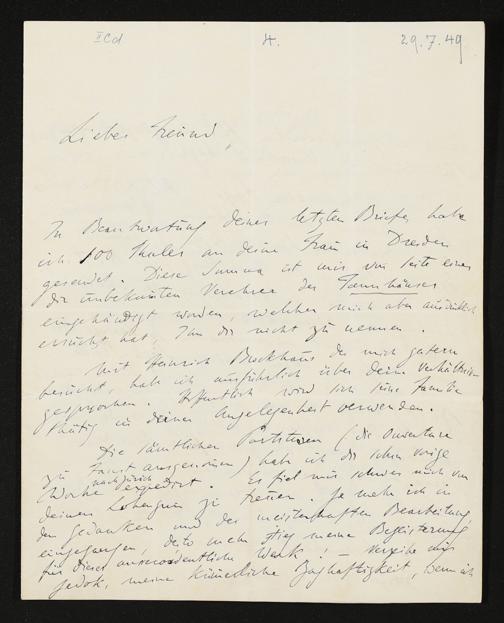 II Cd 4. 29.7.49
Lieber Freund,
In Beantwortung deines letzten Briefes habe
ich 100 Thaler an deine Frau in Dresden
gesendet. Diese Summa ist mir von Seite eines
dir unbekannten Verehrer des Tannhäuser
eingehändigt worden, welcher mich aber ausdrücklich
ersucht hat, Ihn dir nicht zu nennen.
Mit Heinrich Brockhaus der mich gestern
besucht, hab ich ausführlich über deine Verhältnisse
gesprochen. Hoffentlich wird sich seine Familie
thätig in deiner Angelegenheit verwenden.
Die sämtlichen Partituren (die Ouverture
zu Faust ausgenommen) hab ich dir schon vorige
Woche nach Zürich expediert. Es fiel mir schwer mich von
deinem Lohengrin zu trennen. Je mehr ich in
den Gedanken und der meisterhaften Bearbeitung
eingegangen, desto mehr stieg meine Begeisterung
für dieses ausserordentliche Werk! – Vergebe mir
jedoch, meine kümmerliche Zaghaftigkeit, wenn ich